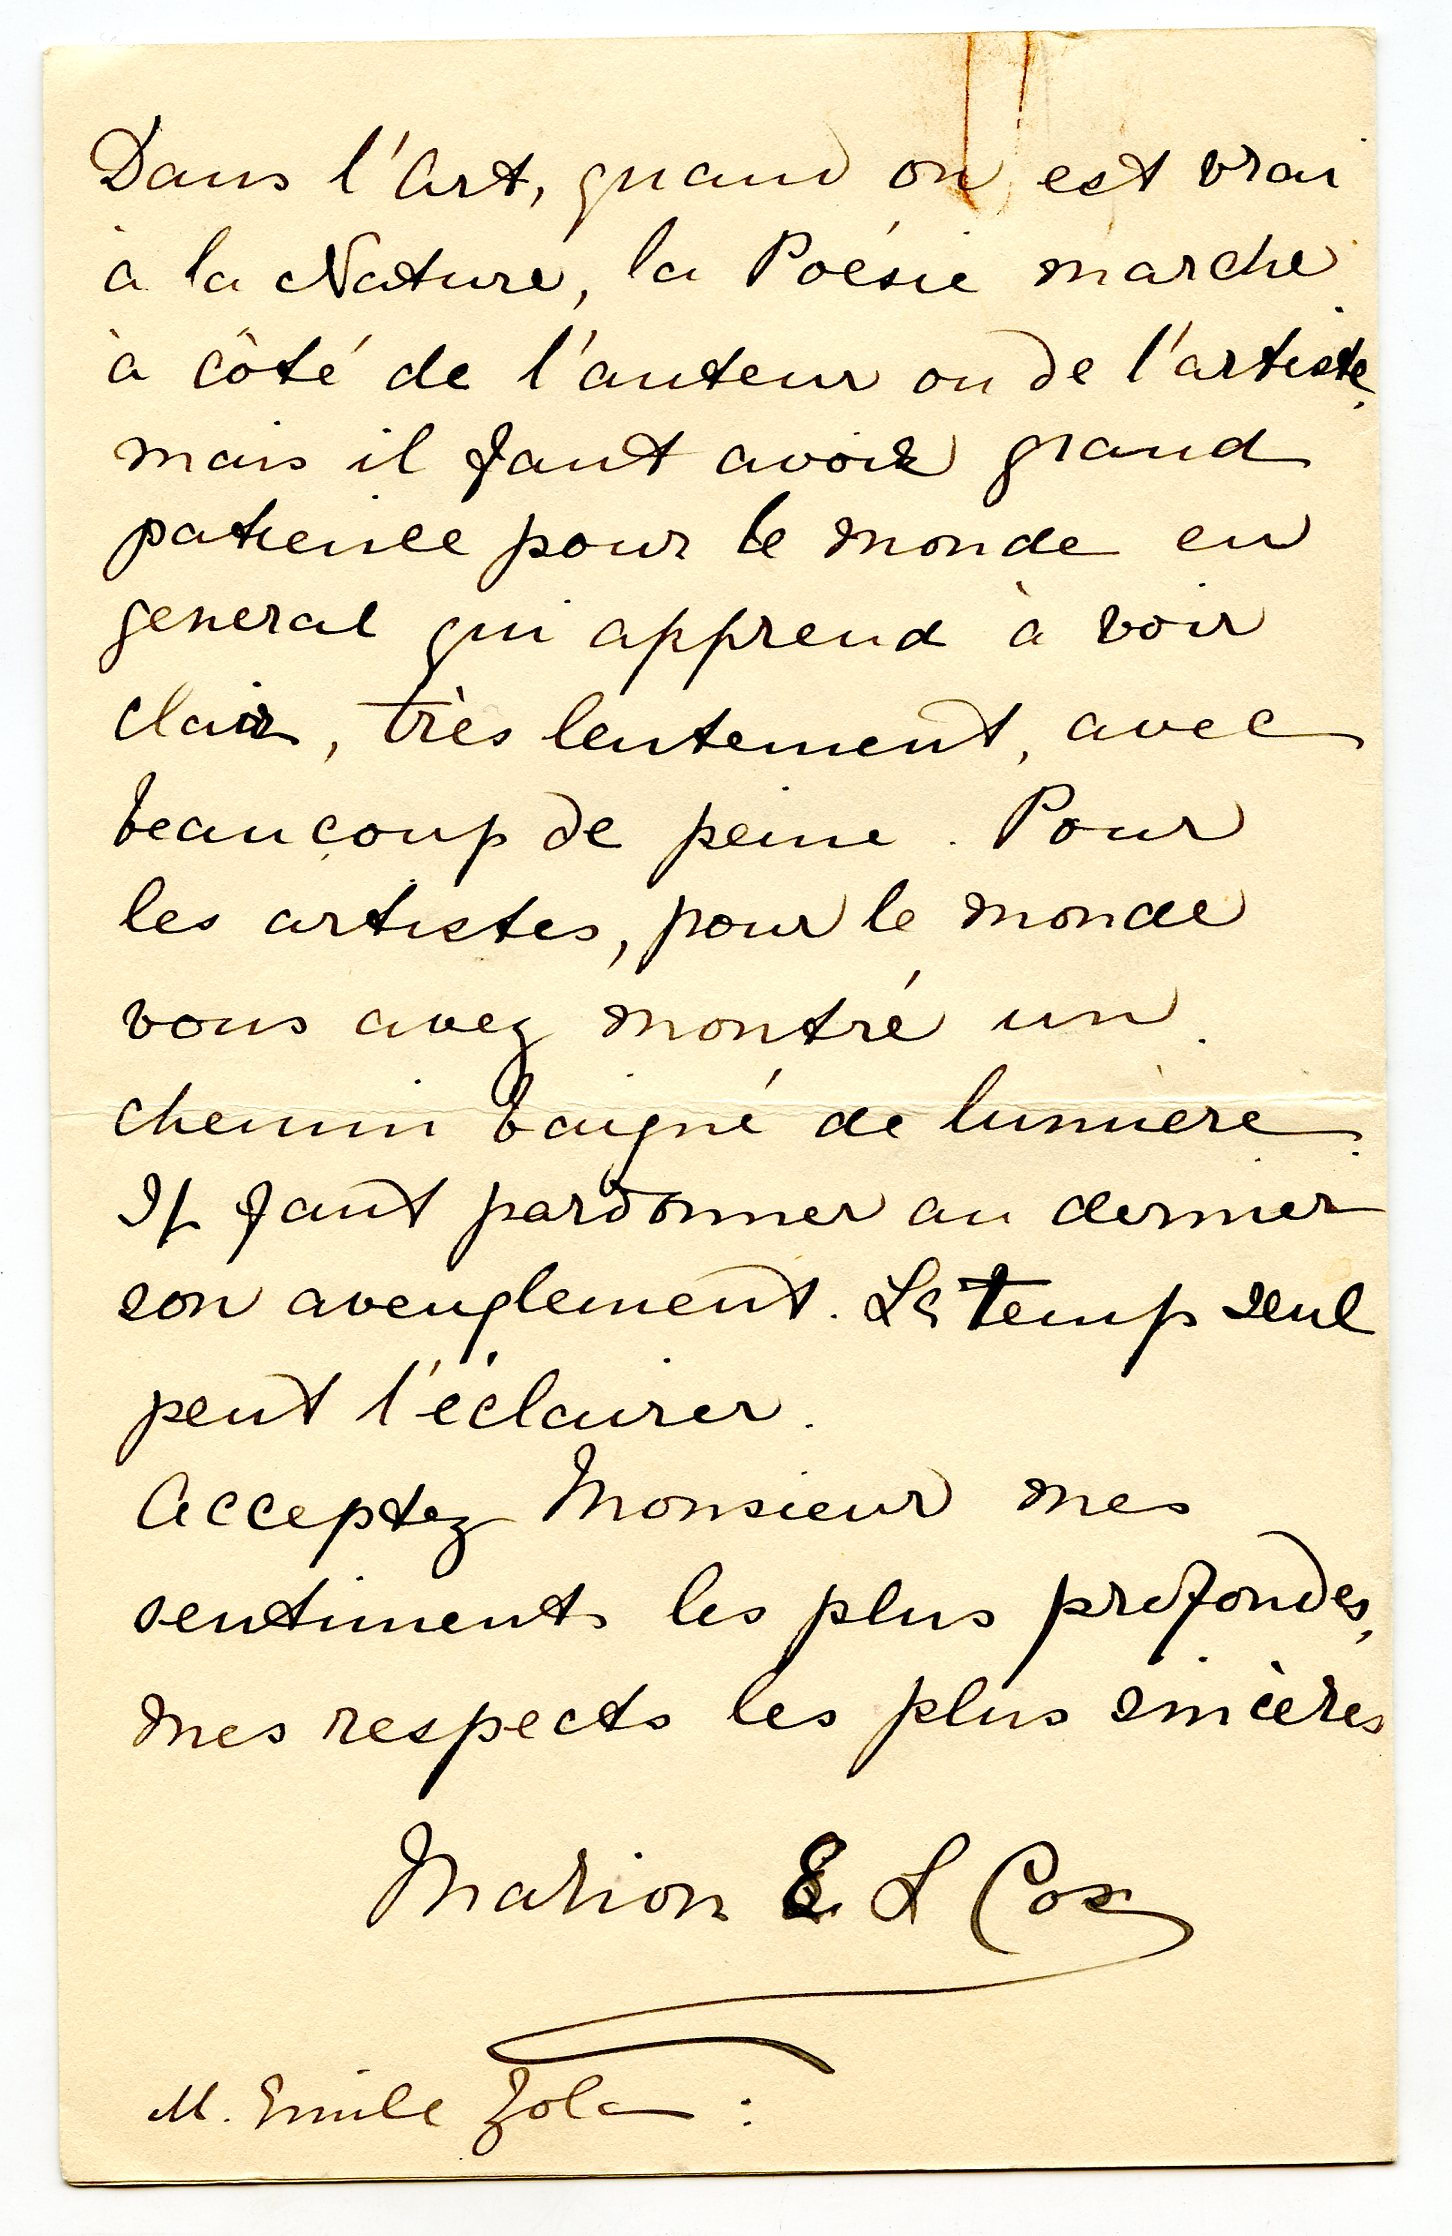 Dans l'Art, quand on est vrai
à la Nature, la Poésie marche
à côté de l'auteur ou de l'artiste.
mais il faut avoir grand
patience pour le monde en
general qui apprend à voir
clair, très lentement, avec
beaucoup de peine. Pour
les artistes, pour le monde
vous avez montré un
chemin baigné de lumière.
Il faut pardonner au dernier
son aveuglement. Le temps seul
peut l'éclairer.
Acceptez Monsieur mes
sentiments les plus profondes,
mes respects les plus sincères
Marion E. L Cox
M. Emile Zola :